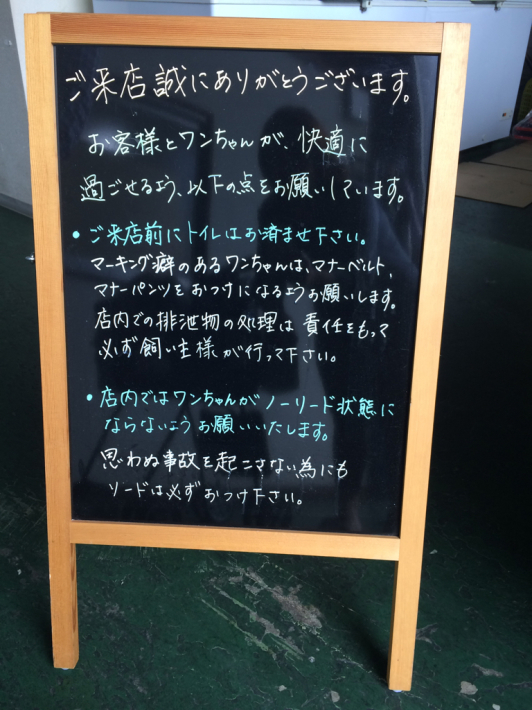 ご来店誠にありがとうございます。
お客様とワンちゃんが、快適に
過ごせるよう、以下の点をお願いしています。
• ご来店前にトイレはお済ませ下さい。
マーキング癖のあるワンちゃんは、マナーベルト、
マナーパンツをおつけになるようお願いします。
店内での排泄物の処理は責任をもって
必ず飼い主様が行って下さい。
• 店内ではワンちゃんがノーリード状態に
ならないようお願いいたします。
思わぬ事故を起こさない為にも
リードは必ずおつけ下さい。